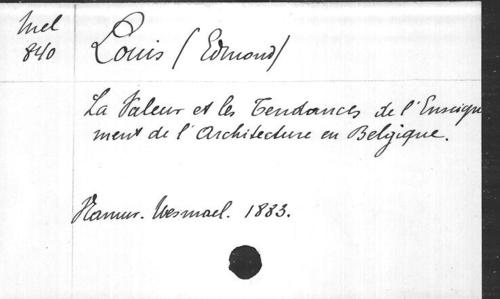 Mel
840
Louis (Edmond)
La Valeur et les Tendances de l'Enseigne
ment de l'Architecture en Belgique.
Namur. Wesmael. 1883.